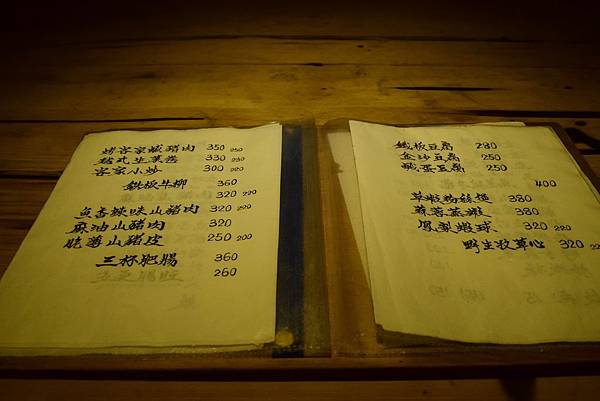 烤客家鹹豬肉 350 250
越式生菜捲 330 230
客家小炒 300 220
鐵板牛柳 360
320 220
魚香辣味山豬肉 320 220
麻油山豬肉 320
脆薑山豬皮 250 200
三杯肥腸 360
260
鐵板豆腐 280
金沙豆腐 250
鹹蛋豆腐 250
400
草蝦粉絲煲 380
蒜蓉蒸蝦 380
鳳梨蝦球 320 220
野生牧草心 320 220